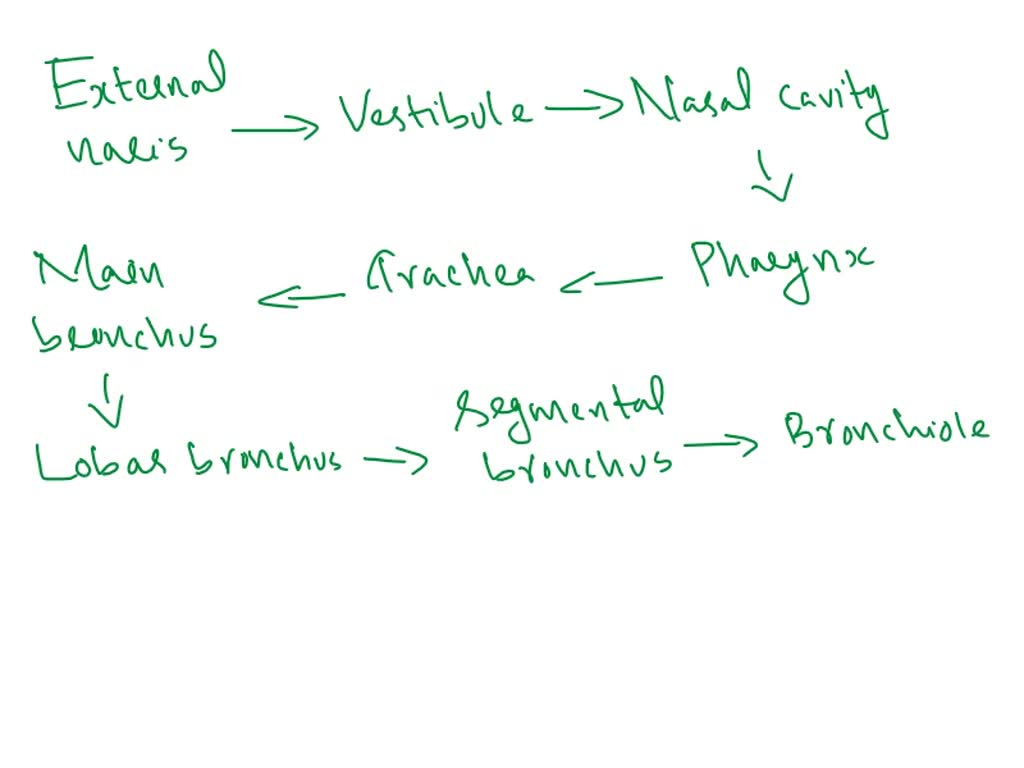 External
naris → Vestibule → Nasal cavity
↓
Main
bronchus ← Trachea ← Pharynx
↓
Lobar bronchus → Segmental
bronchus → Bronchiole